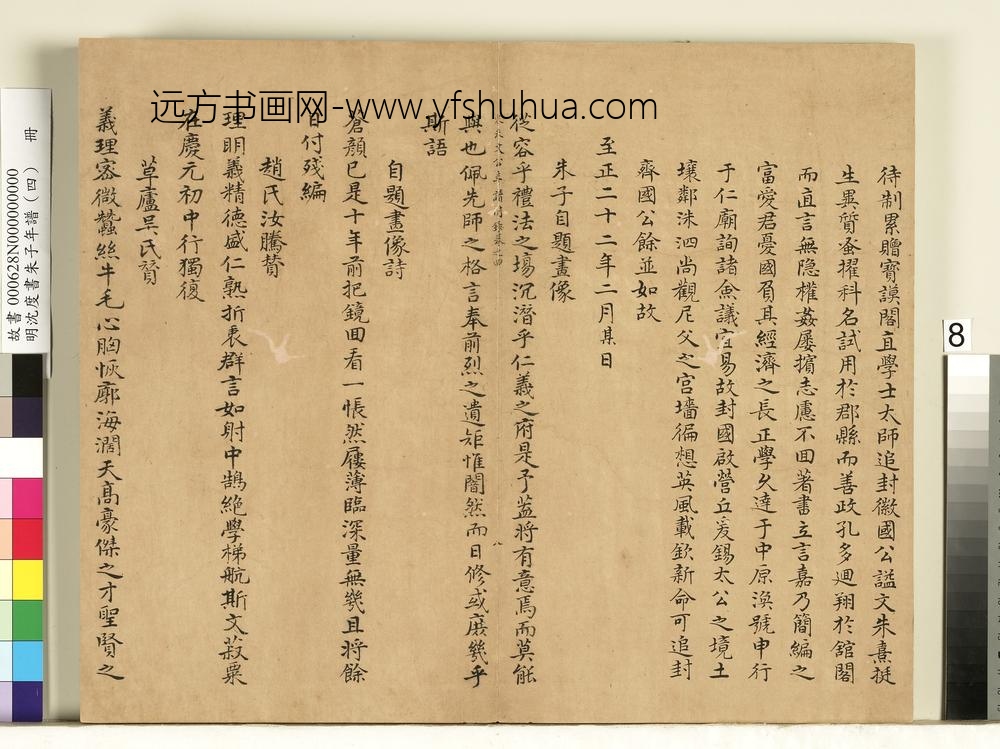 远方书画网-www.yfshuhua.com
待制累贈寶謨閣直學士太師追封徽國公謚文朱熹挺
生異質蚤擢科名試用於郡縣而善政孔多迴翔於舘閣
而直言無隐權姦屢擯志慮不回著書立言嘉乃簡編之
富愛君憂國負其經濟之長正學久達于中原渙號申行
于仁廟詢諸僉議宜易故封國啟營丘爰錫太公之境土
壤鄰洙泗尚觀尼父之宮墻徧想英風載欽新命可追封
齊國公餘並如故
至正二十二年二月某日
朱子自題畫像
從容乎禮法之場沉潛乎仁義之府是予盖將有意焉而莫能
與也佩先師之格言奉前烈之遺矩惟闇然而日修或庶幾乎
斯語
自題畫像詩
蒼顔已是十年前把鏡回看一悵然履薄臨深量無幾且將餘
日付殘編
趙氏汝騰贊
理明義精德盛仁熟折衷群言如射中鵠絶學梯航斯文菽粟
在慶元初中行獨復
草廬吳氏贊
義理宻微蠶絲牛毛心胸恢廓海濶天高豪傑之才聖賢之
八
故書000628N000000000
明沈度書朱子年譜(四) 冊
8